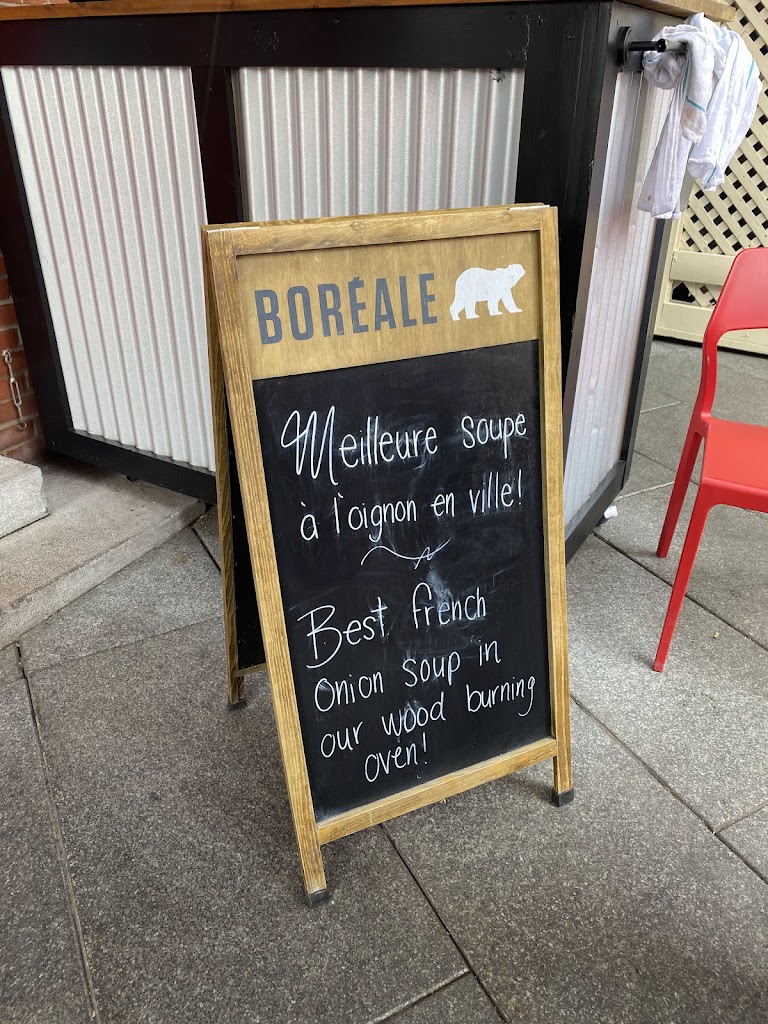 BORÉALE
Meilleure soupe
à l'oignon en ville!
Best french
onion soup in
our wood burning
oven!